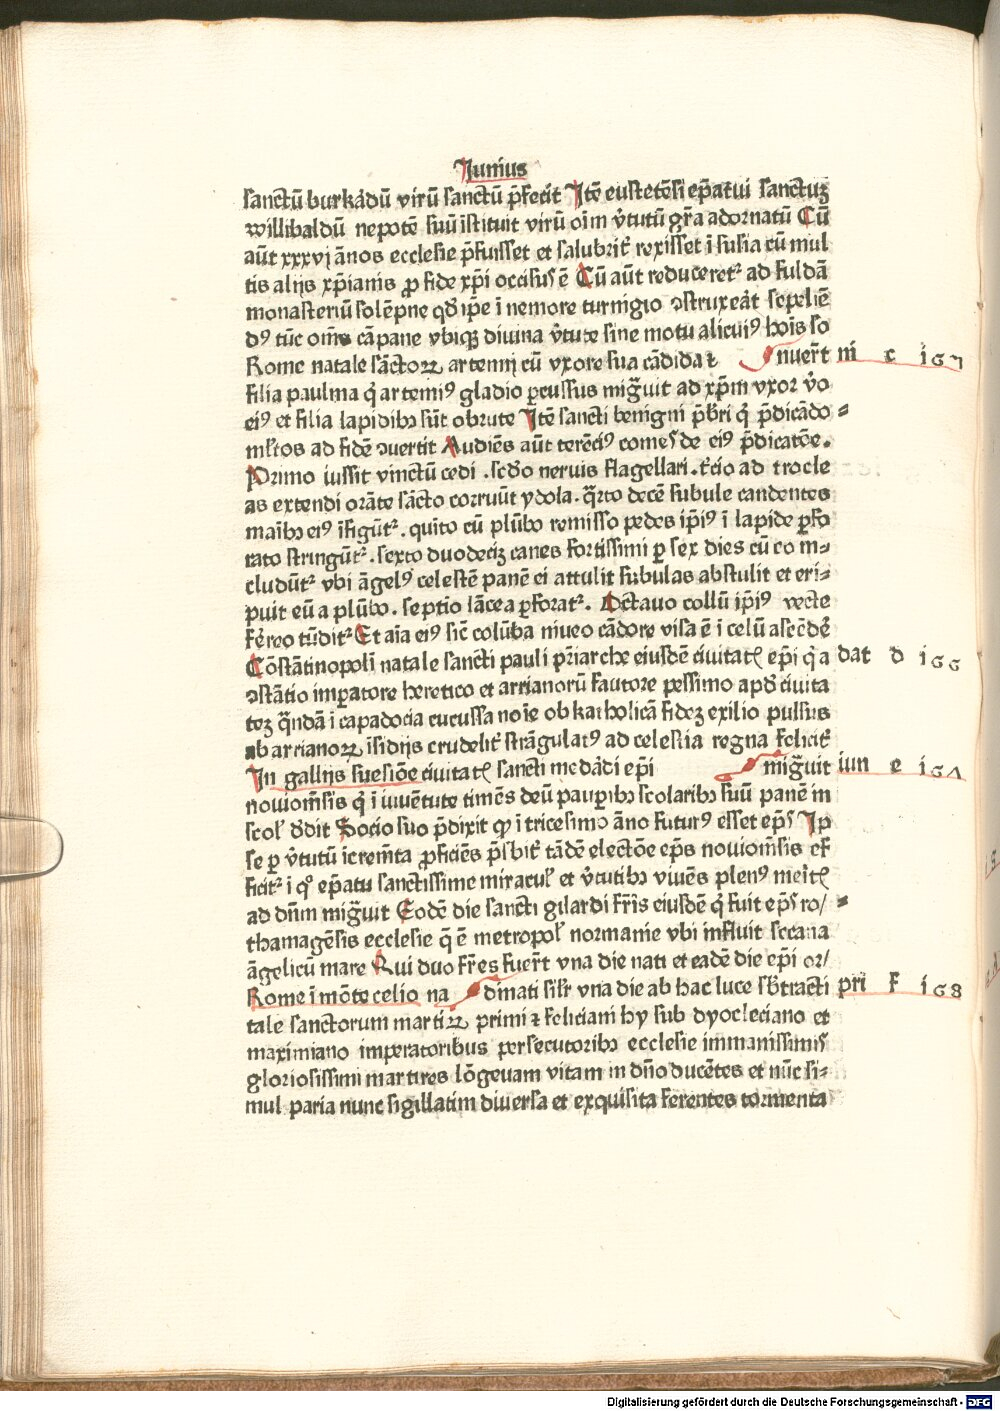 Junius
sanctū burkādū virū sanctū p̄fecit Itē eustetēsi ep̄atui sanctuȝ
willibaldū nepotē suū īstituit virū oīm v̄tutū gr̄a adornatū Cū
aūt xxxvj ānos ecclesie p̄fuisset et salubrit̄ rexisset ī fusia cū mul
tis alijs xp̄ianis ꝓ fide xp̄i occisus ē Cū aūt reduceretᷣ ad fuldā
monasteriū solēpne qd̄ ip̄e ī nemore turingio ꝯstruxeāt sepeliē
dꝰ tūc om̄s cāpane vbiqꝫ diuina v̄tute sine motu alicuiꝰ hoīs so
Rome natale sāctoꝝ artemij cū vxore sua cādida ⁊ nuer̄t nī c 167
filia paulina q̄ artemiꝰ gladio ꝑcussus migᷓuit ad xp̄m vxor v̄o
eiꝰ et filia lapidibꝫ sūt obrute Itē sancti benigni p̄bri q̄ p̄dicādo =
ml̄tos ad fidē ꝯuertit Audiēs aūt terēciꝰ comes de eiꝰ p̄dicatōe.
Primo iussit vinctū cedi . scd̄o neruis flagellari . t̄cio ad trocle
as extendi orāte sācto corruūt ydola . q̄rto decē subule candentes
maībꝫ eiꝰ īfigūtᷣ . quīto cū plūbo remisso pedes ip̄iꝰ ī lapide ꝑfo
rato stringūtᷣ . sexto duodeciꝫ canes fortissimi ꝑ sex dies cū eo in=
cludūtᷣ vbi āgelꝰ celestē panē ei attulit subulas abstulit et eri=
puit eū a plūbo . septio lācea ꝑforatᷣ . Octauo collū ip̄iꝰ vecte
fērreo tūditᷣ Et aīa eiꝰ sic̄ colūba niueo cādore visa ē ī celū ascēdē
Cōstātinopoli natale sancti pauli pr̄iarche eiusdē ciuitatꝭ ep̄i q̄ a dat d 166
ꝯstātio imꝑatore heretico et arrianorū fautore pessimo apd̄ ciuita
teꝫ qᷓndā ī capadocia cucussa noīe ob katholicā fideꝫ exilio pulsus
ab arrianoꝝ īsidijs crudelit̄ strāgulatꝰ ad celestia regna felicit̄
In gallijs suesiōe ciuitatꝭ sancti medādi ep̄i migᷓuit iun e 167
nouiom̄sis q̄ ī iuuētute timēs deū pauꝑibꝫ scolaribꝫ suū panē in
scol̄ d̄dit Socio suo p̄dixit ꝙ ī tricesimo āno futurꝰ esset ep̄s Ip
se ꝑ v̄tutū īcrem̄ta ꝓficiēs p̄sbit̄ tādē electōe ep̄s nouiom̄sis ef
ficitᷣ ī qͦ ep̄atu sanctissime miracul̄ et v̄tutibꝫ viuēs plenꝰ meīt̄ꝭ
ad dn̄m migᷓuit Eodē die sancti gilardi fr̄is eiusdē q̄ fuit ep̄s ro/ =
thamagēsis ecclesie q̄ ē metropol̄ normanie vbi influit secana
āgelicū mare Qui duo fr̄es fuer̄t vna die nati et eadē die ep̄i or/
Rome ī mōte celio na dinati sil̄r vna die ab hac luce sb̄tracti pri f 168
tale sanctorum martiꝝ primi ⁊ feliciani hy sub dyocleciano et
maximiano imperatoribus persecutoribꝫ ecclesie immanissimis
gloriosissimi martires lōgeuam vitam in dn̄o ducētes et nūc si=
mul paria nunc sigillatim diuersa et exquisita ferentes tormenta
Digitalisierung gefördert durch die Deutsche Forschungsgemeinschaft - DFG